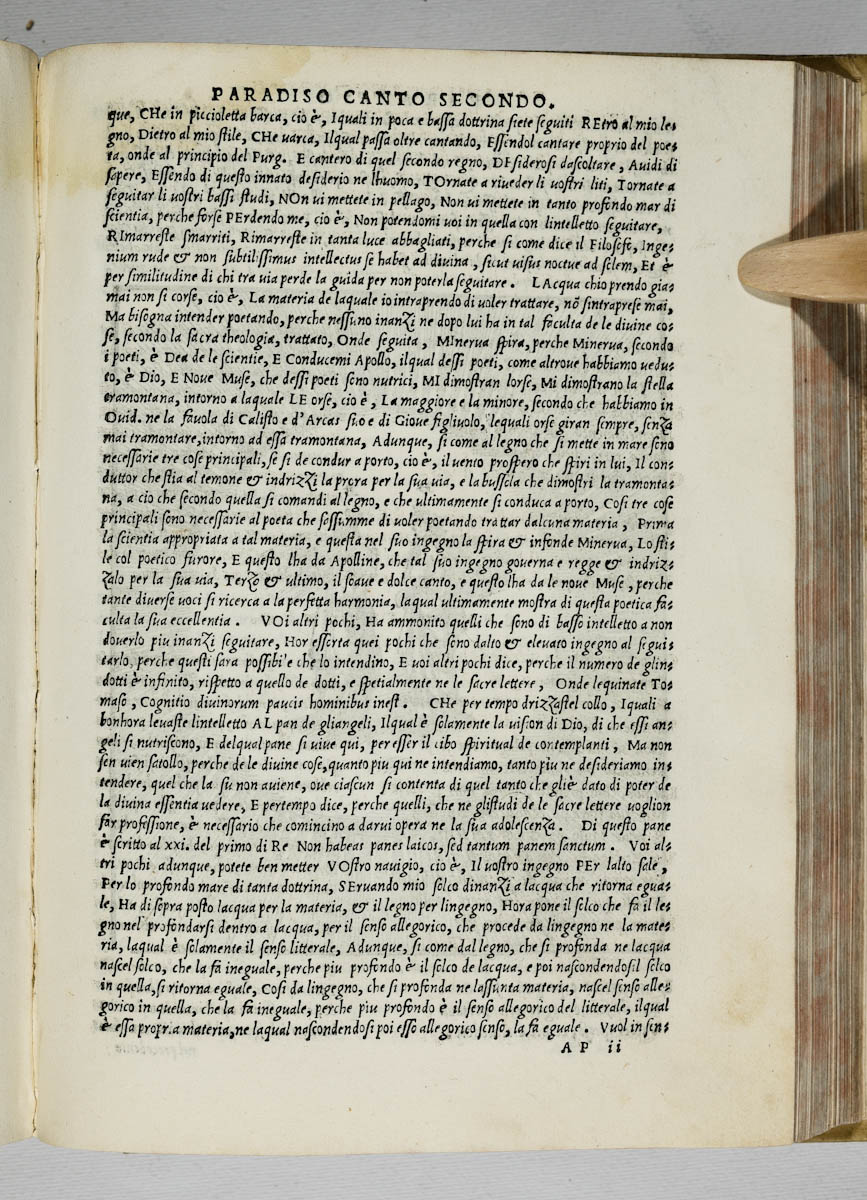 PARADISO CANTO SECONDO.
que, CHe in piccioletta barca, cio è, Iquali in poca e bassa dottrina siete seguiti REtro al mio le⸗
gno, Dietro al mio stile, CHe varca, Ilqual passa oltre cantando, Essendol cantare proprio del poe⸗
ta, onde al principio del Purg. E cantero di quel secondo regno, DEsiderosi dascoltare, Auidi di
sapere, Essendo di questo innato desiderio ne lhuomo, TOrnate a riueder li uostri liti, Tornate a
seguitar li uostri bassi studi, NOn ui mettete in pelago, Non ui mettete in tanto profondo mar di
scientia, perche forse PErdendo me, cio è, Non potendomi uoi in quella con lintelletto seguitare,
RImarreste smarriti, Rimarreste in tanta luce abbagliati, perche si come dice il Filosofo, Inge⸗
nium rude & non subtilissimus intellectus se habet ad divina, sicut visus noctue ad solem, Et è
per similitudine di chi tra via perde la guida per non poterla seguitare. LAcqua chio prendo gia⸗
mai non si corse, cio è, La materia de laquale io intraprendo di uoler trattare, nõ sintraprese mai,
Ma bisogna intender poetando, perche nessuno inanzi ne dopo lui ha in tal faculta de le diuine co⸗
se, secondo la sacra theologia, trattato, Onde seguita, MInerua spira, perche Minerua, secondo
i poeti, è Dea de le scientie, E Conducemi Apollo, ilqual dessi poeti, come altroue habbiamo uedu⸗
to, è Dio, E Noue Muse, che dessi poeti sono nutrici, MI dimostran lorse, Mi dimostrano la stella
tramontana, intorno a laquale LE orse, cio è, La maggiore e la minore, secondo che habbiamo in
Ouid. ne la fauola di Calisto e d'Arcas suo e di Gioue figliuolo, lequali orse giran sempre, senza
mai tramontare, intorno ad essa tramontana, Adunque, si come al legno che si mette in mare sono
necessarie tre cose principali, se si de condur a porto, cio è, il uento prospero che spiri in lui, Il con⸗
duttor che stia al temone & indrizzi la prora per la sua via, e la bussola che dimostri la tramonta⸗
na, a cio che secondo quella si comandi al legno, e che ultimamente si conduca a porto, Cosi tre cose
principali sono necessarie al poeta che sassumme di uoler poetando trattar dalcuna materia, Prima
la scientia appropriata a tal materia, e questa nel suo ingegno la spira & infonde Minerua, Lo sti⸗
le col poetico furore, E questo lha da Apolline, che tal suo ingegno gouerna e regge & indriz⸗
zalo per la sua via, Terzo & ultimo, il soaue e dolce canto, e questo lha da le noue Muse, perche
tante diuerse uoci si ricerca a la perfetta harmonia, laqual ultimamente mostra di questa poetica fa⸗
culta la sua eccellentia. VOi altri pochi, Ha ammonito quelli che sono di basso intelletto a non
douerlo piu inanzi seguitare, Hor esserta quei pochi che sono dalto & eleuato ingegno al segui⸗
tarlo, perche questi sara possibile che lo intendino, E uoi altri pochi dice, perche il numero de glin⸗
dotti è infinito, rispetto a quello de dotti, e spetialmente ne le sacre lettere, Onde lequinate To⸗
maso, Cognitio diuinorum paucis hominibus inest. CHe per tempo drizzastel collo, Iquali a
bonhora leuaste lintelletto AL pan de gliangeli, Ilqual è solamente la uision di Dio, di che essi an⸗
geli si nutriscono, E delqual pane si uiue qui, per esser il cibo spiritual de contemplanti, Ma non
sen uien satollo, perche de le diuine cose, quanto piu qui ne intendiamo, tanto piu ne desideriamo in⸗
tendere, quel che la su non auiene, oue ciascun si contenta di quel tanto che gliè dato di poter de
la diuina essentia uedere, E pertempo dice, perche quelli, che ne glistudi de le sacre lettere uoglion
far professione, è necessario che comincino a darui opera ne la sua adolescenza. Di questo pane
è scritto al xxi. del primo di Re Non habeas panes laicos, sed tantum panem sanctum. Voi al⸗
tri pochi adunque, potete ben metter VOstro nauigio, cio è, Il uostro ingegno PEr lalto sale,
Per lo profondo mare di tanta dottrina, SEruando mio solco dinanzi a lacqua che ritorna egua⸗
le, Ha di sopra posto lacqua per la materia, & il legno per lingegno, Hora pone il solco che fa il le⸗
gno nel profondarsi dentro a lacqua, per il senso allegorico, che procede da lingegno ne la mate⸗
ria, laqual è solamente il senso litterale, Adunque, si come dal legno, che si profonda ne lacqua
nascel solco, che la fa ineguale, perche piu profondo è il solco de lacqua, e poi nascondendosi l solco
in quella, si ritorna eguale, Cosi da lingegno, che si profonda ne lassunta materia, nascel senso alle⸗
gorico in quella, che la fa ineguale, perche piu profondo è il senso allegorico del litterale, ilqual
è essa propria materia, ne laqual nascondendosi poi esso allegorico senso, la fa eguale. Vuol in sen⸗
AP ii